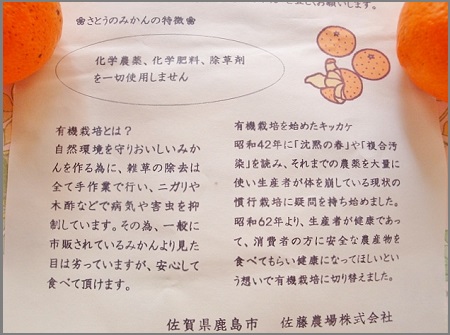 お願いします。
❀さとうのみかんの特徴❀
化学農薬、化学肥料、除草剤
を一切使用しません
有機栽培とは?
自然環境を守りおいしいみか
んを作る為に、雑草の除去は
全て手作業で行い、ニガリや
木酢などで病気や害虫を抑
制しています。その為、一般に
市販されているみかんより見た
目は劣っていますが、安心して
食べて頂けます。
有機栽培を始めたキッカケ
昭和42年に「沈黙の春」や「複合汚
染」を読み、それまでの農薬を大量に
使い生産者が体を崩している現状の
慣行栽培に疑問を持ち始めました。
昭和62年より、生産者が健康であっ
て、消費者の方に安全な農産物を
食べてもらい健康になってほしいとい
う想いで有機栽培に切り替えました。
佐賀県鹿島市 佐藤農場株式会社